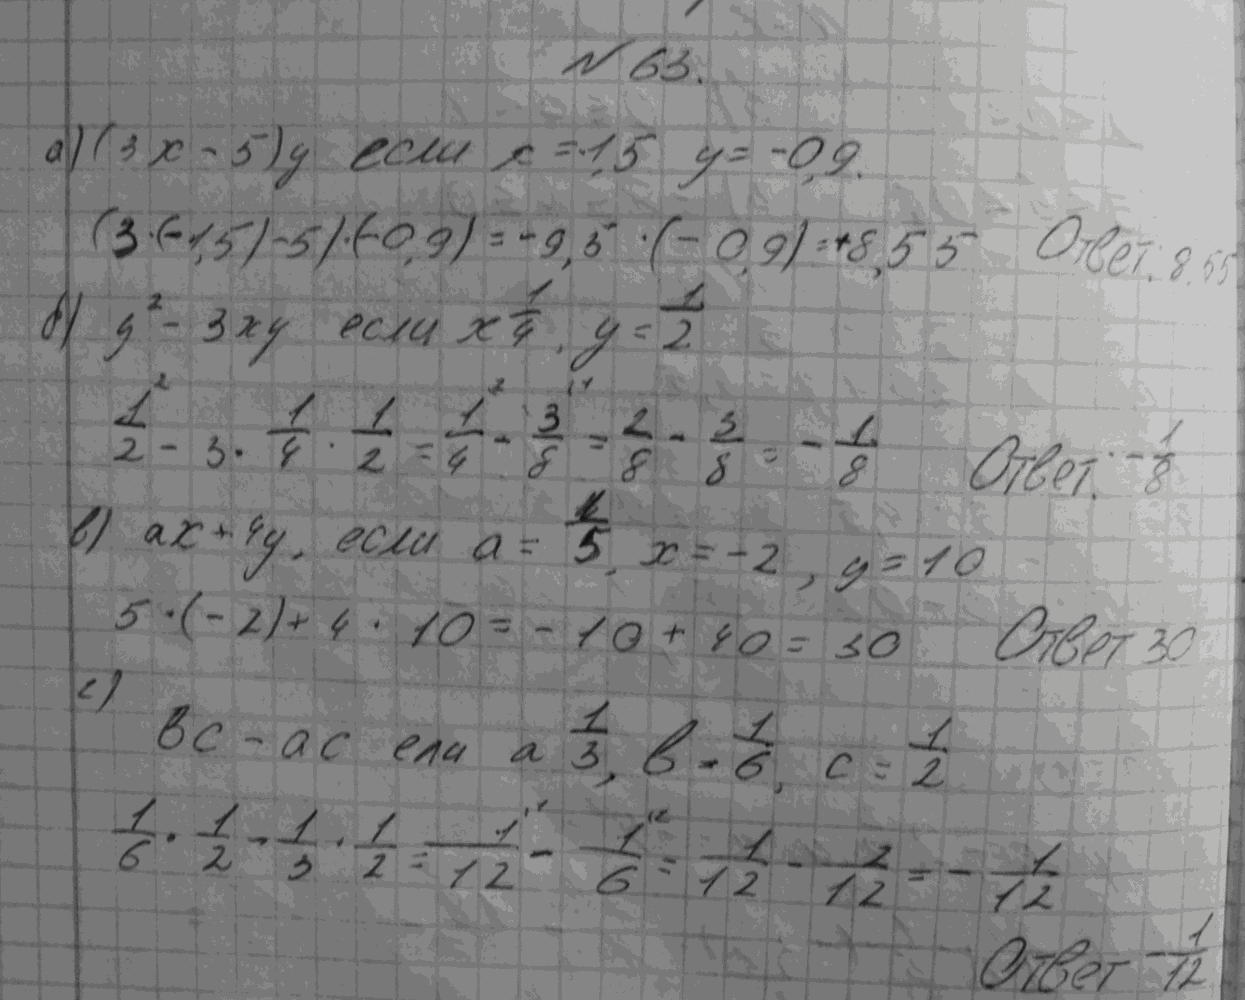 № 63.
а) (3x - 5)y если x = -1,5 y = -0,9.
(3·(-1,5)-5)·(-0,9) = -9,5·(-0,9) = +8,55 Ответ: 8,55
б) y² - 3xy если x 1/4, y = 1/2
1/2² - 3 · 1/4 · 1/2 = 1/4 - 3/8 = 2/8 - 3/8 = -1/8 Ответ: -1/8
в) ax + 4y, если a = 5, x = -2, y = 10
5·(-2) + 4 · 10 = -10 + 40 = 30 Ответ 30
г)
вс - ас ели а 1/3, в = 1/6, с = 1/2
1/6 · 1/2 - 1/3 · 1/2 = 1/12 - 1/6 = 1/12 - 2/12 = -1/12
Ответ -1/12